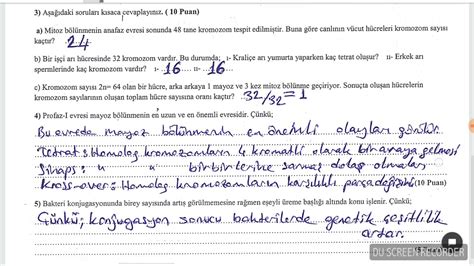 3) Aşağıdaki soruları kısaca cevaplayınız. ( 10 Puan)
a) Mitoz bölünmenin anafaz evresi sonunda 48 tane kromozom tespit edilmiştir. Buna göre canlının vücut hücreleri kromozom sayısı
kaçtır? 24
b) Bir işçi arı hücresinde 32 kromozom vardır. Bu durumda; ı- Kraliçe arı yumurta yaparken kaç tetrat oluşur? ıı- Erkek arı
spermlerinde kaç kromozom vardır? ı- 16 .... ıı- 16 ....
c) Kromozom sayısı 2n= 64 olan bir hücre, arka arkaya 1 mayoz ve 3 kez mitoz bölünme geçiriyor. Sonuçta oluşan hücrelerin
kromozom sayılarının oluşan toplam hücre sayısına oranı kaçtır? 32/32=1
4) Profaz-I evresi mayoz bölünmenin en uzun ve en önemli evresidir. Çünkü;
Bu evrede mayoz bölünmenin en önemli olayları görülür.
Tetrat: Homolog kromozomların 4 kromatli olarak bir araya gelmesi
Sinaps: " " birbirlerine sarmaş dolaş olmaları
Kross-over: Homolog kromozomların karşılıklı parça değişimi (10 Puan)
5) Bakteri konjugasyonunda birey sayısında artış görülmemesine rağmen eşeyli üreme başlığı altında konu işlenir. Çünkü;
Çünkü; konjugasyon sonucu bakterilerde genetik çeşitlilik
artar.
DU SCREEN RECORDER